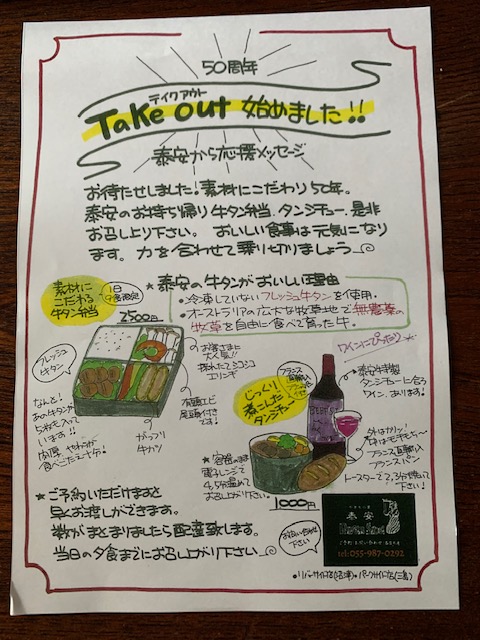 50周年
テイクアウト
Take out 始めました!!
泰安から応援メッセージ
お待たせしました!素材にこだわり50年。
泰安のお持ち帰り牛タン弁当、タンシチュー、是非
お召し上り下さい。おいしい食事は元気になり
ます。力を合わせて乗り切りましょう
素材に
こだわる
牛タン弁当
1日
食限定
2500円
★泰安の牛タンがおいしい理由
・冷凍していないフレッシュ牛タンを使用。
・オーストラリアの広大な牧草地で無農薬の
牧草を自由に食べて育った牛。
フレッシュ
牛タン
なんと!
あの牛タンが
5枚も入って
います!!
肉厚 やわらか
食べごたえ十分!
お客さまに
大人気!!
エリンギ
有頭エビ
尾頭付き
です!
がっツリ
牛カツ
ワインにぴったり
じっくり
煮こんだ
タンシチュー
フランス
パン
付
泰安特製
タンシチューに合う
ワイン、あります!
BEEF
外はカリッ!
中はモチモチ〜
フランス直輸入
フランスパン
トースターで2,3分焼いて
下さい!
★容器のまま
電子レンジで
4,5分温めて
お召上り下さい。
1000円
★ご予約いただけますと
早くお渡しができます。
数がまとまりましたら配達致します。
当日の夕食までにお召し上がり下さい
お問い合わせ
下さい
泰安
tel:055-987-0292
・リバーサイド店(沼津)・パークサイド店(三島)